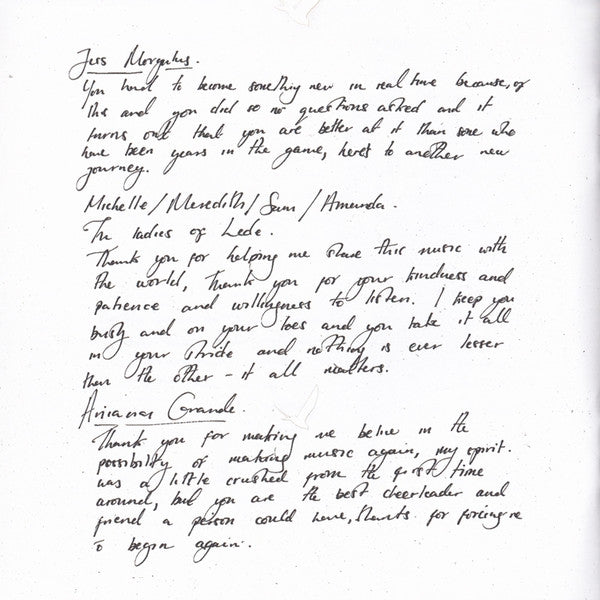 Jess Morgulus.
You had to become something new in real time because, of
this and you did so no questions asked and it
turns out that you are better at it than some who
have been years in the game, here's to another new
journey.
Michelle/Meredith/Sam/Amanda.
The ladies of Lede.
Thank you for helping me share this music with
the world, Thank you for your kindness and
patience and willingness to listen. I keep you
busy and on your toes and you take it all
in your stride and nothing is ever lesser
then the other - it all matters.
Arianna Grande.
Thank you for making me belive in the
possibility of making music again, my spirit
was a little crushed from the first time
around, but you are the best cheerleader and
friend a person could have, thanks for forcing me
to begin again.